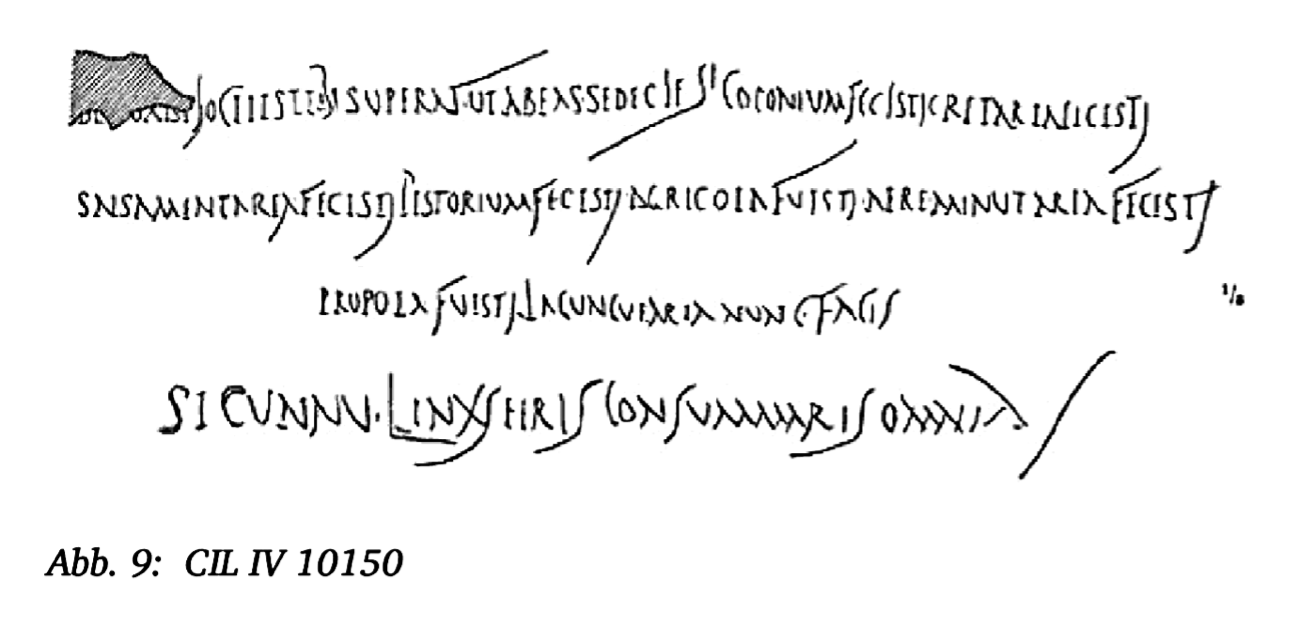 OCTIES TIBI SUPERAT·UT ABEAS·SEDECIES COPONIUM FECISTI CRETARIA FECISTI
SALSAMENTARIA FECISTI PISTORIUM FECISTI·AGRICOLA FUISTI·AEREMINUTARIA FECISTI
PROPOLA FUISTI LAGUNCULARIA NUNC·FACIS
1/8
SI CUNNU·LINXSERIS CONSUMMARIS OMNIA
Abb. 9: CIL IV 10150